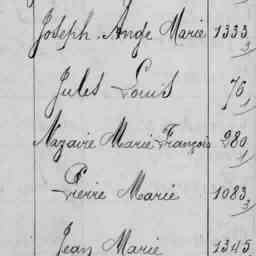 Joseph Ange Marie 1333
3
Jules Louis 76
1
Nazaire Marie François 280
1
Pierre Marie 1083
3
Jean Marie 1345